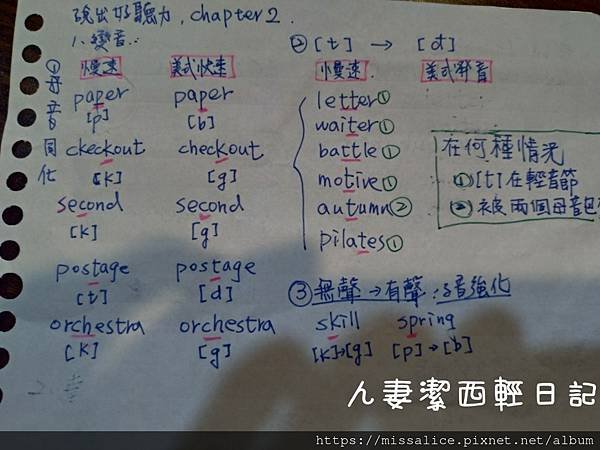 說出好聽力, chapter 2.
1、變音:
①子音同化
慢速 美式快速
paper paper
[p] [b]
ckeckout checkout
[k] [g]
second second
[k] [g]
postage postage
[t] [d]
orchestra orchestra
[k] [g]
② [t] → [d]
慢速 美式弹音
letter①
waiter①
battle①
motive①
autumn②
pilates①
在何種情況
①[t]在輕音節
②被兩個母音包
③無聲→有聲:s音強化
skill spring
[k]→[g] [p]→[b]
人妻潔西輕日記
https://missalice.pixnet.net/album